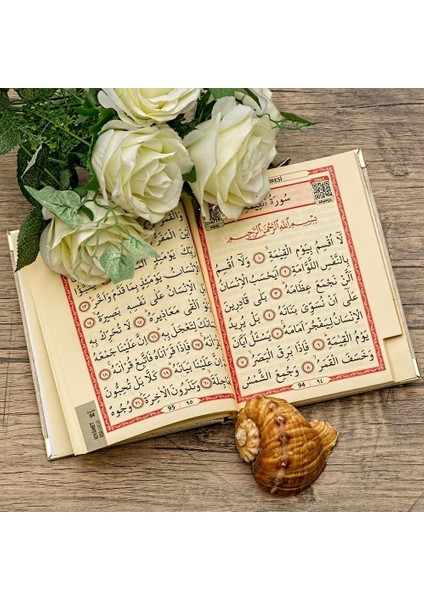 سُورَةُ
بِسْمِ اللّٰهِ الرَّحْمٰنِ الرَّحٖيمِ
لَٓا اُقْسِمُ بِيَوْمِ الْقِيٰمَةِۙ ١ وَلَٓا اُقْسِمُ
بِالنَّفْسِ اللَّوَّامَةِ ٢ اَيَحْسَبُ الْاِنْسَانُ
اَلَّنْ نَجْمَعَ عِظَامَهُ ٣ بَلٰى قَادِرٖينَ
عَلٰٓى اَنْ نُسَوِّيَ بَنَانَهُ ٤ بَلْ يُرٖيدُ
الْاِنْسَانُ لِيَفْجُرَ اَمَامَهُ ٥ يَسْـَٔلُ اَيَّانَ
يَوْمُ الْقِيٰمَةِ ٦ فَاِذَا بَرِقَ الْبَصَرُ ٧
وَخَسَفَ الْقَمَرُ ٨ وَجُمِعَ الشَّمْسُ
94 ٩٤
وَالْقَمَرُ
يُنَبَّؤُا
الْاِنْسَانُ يَوْمَئِذٍ بِمَا قَدَّمَ وَاَخَّرَ ١٣ بَلِ
الْاِنْسَانُ عَلٰى نَفْسِهٖ بَصٖيرَةٌ ١٤
اَلْقٰى مَعَاذٖيرَهُ ١٥ لَا تُحَرِّكْ بِهٖ
لِتَعْجَلَ بِهٖ ١٦ اِنَّ عَلَيْنَا جَمْعَهُ
فَاِذَا قَرَأْنَاهُ فَاتَّبِعْ قُرْاٰنَهُ ١٨
اِنَّ عَلَيْنَا بَيَانَهُ ١٩ كَلَّا بَلْ تُحِبُّونَ
وَتَذَرُونَ الْاٰخِرَةَ ٢١ وُجُوهٌ
95 ٩٥